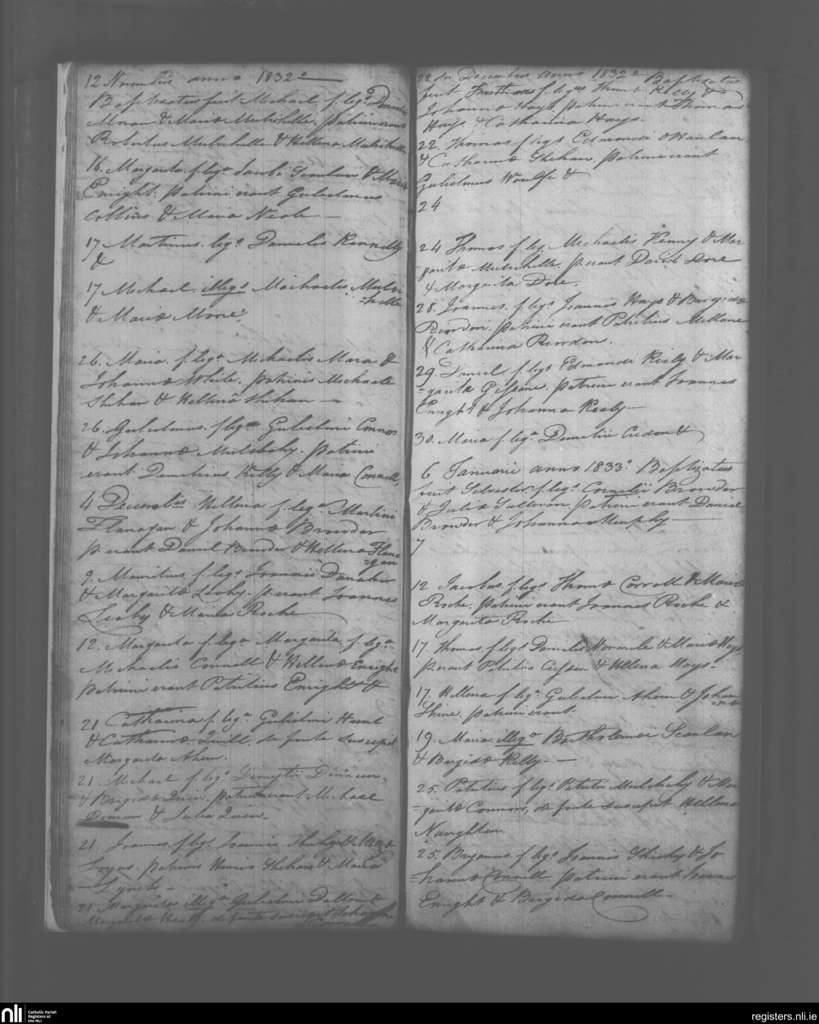 12 Novembris anno 1832
Baptizatus fuit Michael f. legs Danielis
Moran & Maria Mulvihille, patrini erant
Robertus Mulvihille & Hellena Mulvihille
16. Margarita f. legs Jacobi Scanlan & Maria
Enright, patrini erant Gulielmus
Collins & Maria Neale
17 Martinus legs Danielis Kennelly
&
17 Michael illegs Michaelis Mulvi-
hille
& Maria More
26. Maria f. legs Michaelis Mara &
Johanna White, patrinis Michaele
Shehan & Hellena Shehan
26. Gulielmus f legs Gulielmi Connor
& Johanna Mulchohy, patrini
erant Demetrius Kelly & Maria Connell
4 Decembris Hellena f legs Martini
Flanagan & Johanna Browder
p erant Daniel Browder & Hellena Flana-
gan
9. Mauritius f legs Joannis Danaher
& Margarita Leahy, p erant Joannes
Leahy & Maria Roche
12. Margarita f legs Margarita f. legs
Michaelis Connell & Hellena Enright
patrini erant Patritius Enright &
21 Catharina f. legs Gulielmi Hunt
& Catharina Quill, de fonte suscepit
Margarita Ahern.
21 Michael f legs Dineen
& Brigida Quin, patrini erant Michael
Dineen & Julia Quin
21 Joannes f legs Joannis Shehy &
patrinis Shehan & Maria
Lynch
21 Margarita illegs Gulielmi Dalton &
Margarita de fonte suscepit Johanna
22 Decembris anno 1832 Baptizatus
fuit f. legs Thoma Kelly &
Johanna Hays patrini erant Thomas
Hays & Catharina Hays.
22. Thomas f legs Edmundi Hanlan
& Catharina Shehan, patrini erant
Gulielmus Woulfe &
24
24 Thomas f. leg. Michaelis Henry & Mar
garita Mulvihille, p erant David Dore
& Margarita Dore.
28. Joannes f. legs Joannis Hays & Brigida
Reordon, patrini erant Patritius Mullane
& Catharina Reordon.
29. Daniel f legs Edmundi Kiely & Mar
garita Gissane, patrini erant Joannes
Enright & Johanna Kealy
30. Maria f legs Demetrii &
6 Januarii anno 1833. Baptizatus
fuit Silvester f. legs Cornelii Browder
& Julia Sullivan, patrini erant Daniel
Browder & Johanna Murphy
7
12 Jacobus f legs Thoma Carroll & Maria
Roche, patrini erant Joannes Roche &
Margarita Roche
17. Thomas f legs Danielis & Maria Hays
p erant Patritius & Hellena Hays
17. Hellena f legs Gulielmi Ahern & Johan
na
Shine, patrini erant
19. Maria illegs Bartholomei Scanlan
& Brigida Kelly.
25. Patritius f legs Patritii Mulchahy & Mar
garita Connors, de fonte suscepit Hellena
Naughten
25. Bryanus f legs Joannis Shehy & Jo
hanna Connell patrini erant Joannes
Enright & Brigida Connell
nli
Catholic Parish
Registers at
the NLI
registers.nli.ie